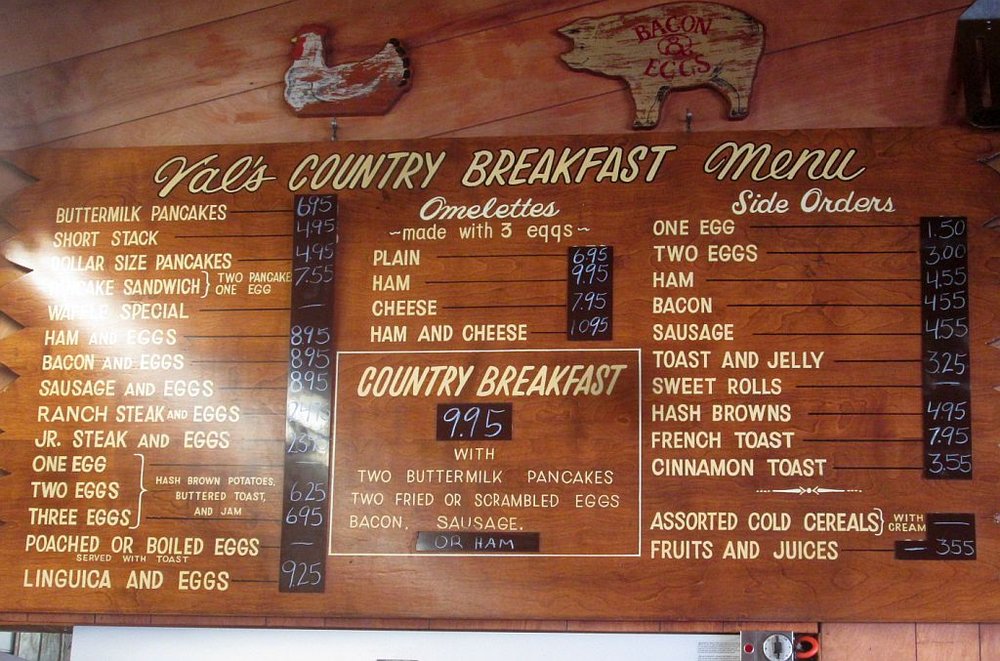 BACON
&
EGGS
Val's COUNTRY BREAKFAST Menu
BUTTERMILK PANCAKES 6.95
SHORT STACK 4.95
DOLLAR SIZE PANCAKES 4.95
PANCAKE SANDWICH } TWO PANCAKE ONE EGG 7.55
WAFFLE SPECIAL —
HAM AND EGGS 8.95
BACON AND EGGS 8.95
SAUSAGE AND EGGS 8.95
RANCH STEAK AND EGGS
JR. STEAK AND EGGS
ONE EGG
TWO EGGS 6.25
THREE EGGS 6.95
HASH BROWN POTATOES,
BUTTERED TOAST,
AND JAM
POACHED OR BOILED EGGS —
SERVED WITH TOAST
LINGUICA AND EGGS 9.25
Omelettes
~made with 3 eggs~
PLAIN 6.95
HAM 9.95
CHEESE 7.95
HAM AND CHEESE 10.95
COUNTRY BREAKFAST
9.95
WITH
TWO BUTTERMILK PANCAKES
TWO FRIED OR SCRAMBLED EGGS
BACON, SAUSAGE,
OR HAM
Side Orders
ONE EGG 1.50
TWO EGGS 3.00
HAM 4.55
BACON 4.55
SAUSAGE 4.55
TOAST AND JELLY 3.25
SWEET ROLLS —
HASH BROWNS 4.95
FRENCH TOAST 7.95
CINNAMON TOAST 3.55
ASSORTED COLD CEREALS } WITH CREAM —
FRUITS AND JUICES — 3.55